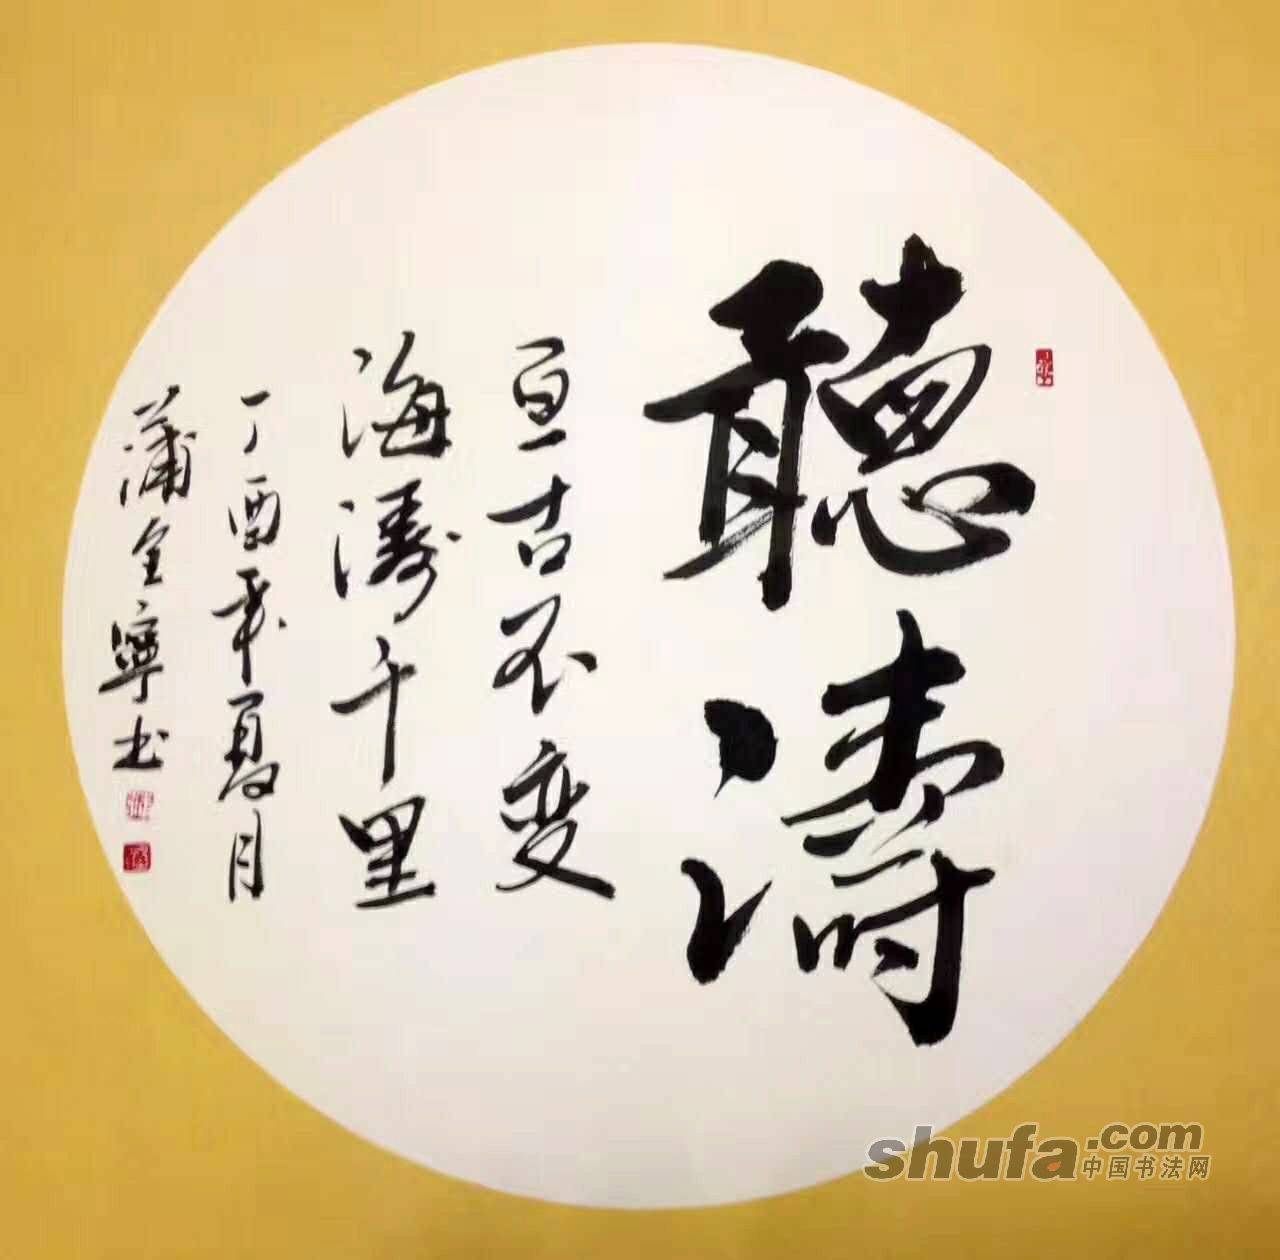 聽濤
亘古不变
海涛千里
丁酉年夏月
蒲全寧书
shufa.com
中国书法网